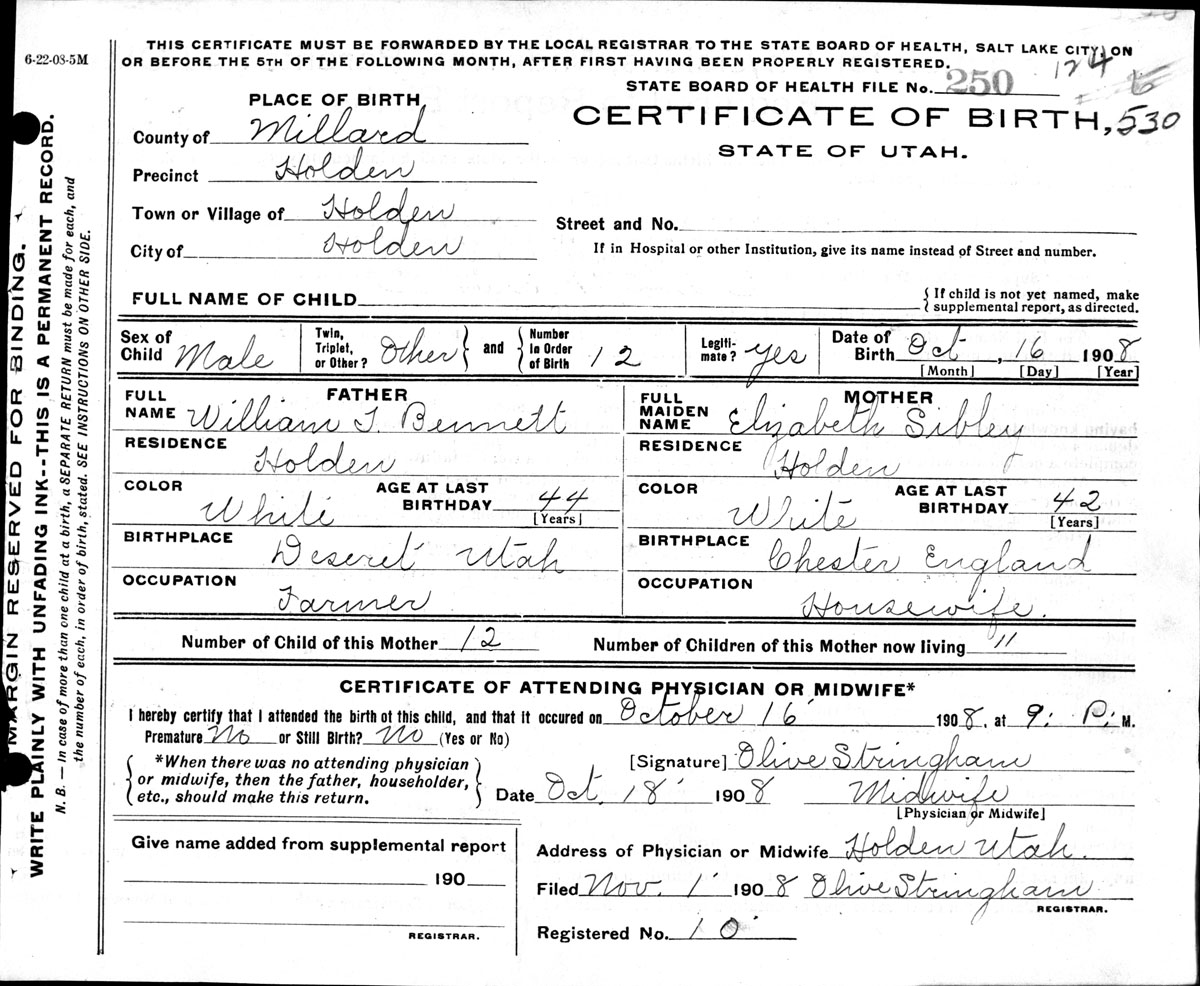 6-22-08-5M
THIS CERTIFICATE MUST BE FORWARDED BY THE LOCAL REGISTRAR TO THE STATE BOARD OF HEALTH, SALT LAKE CITY, ON
OR BEFORE THE 5TH OF THE FOLLOWING MONTH, AFTER FIRST HAVING BEEN PROPERLY REGISTERED.
124
STATE BOARD OF HEALTH FILE No. 250
PLACE OF BIRTH
CERTIFICATE OF BIRTH, 530
County of Millard
STATE OF UTAH.
Precinct Holden
Town or Village of Holden
Street and No.
City of Holden
If in Hospital or other Institution, give its name instead of Street and number.
FULL NAME OF CHILD
{ If child is not yet named, make
{ supplemental report, as directed.
Sex of Child Male
Twin, Triplet, or Other? Other } and { Number In Order of Birth 12
Legiti-mate? yes
Date of Birth Oct, 16 1908
[Month] [Day] [Year]
FATHER
FULL NAME William J. Bennett
RESIDENCE Holden
COLOR White AGE AT LAST BIRTHDAY 44
[Years]
BIRTHPLACE Deseret Utah
OCCUPATION Farmer
MOTHER
FULL MAIDEN NAME Elizabeth Sibley
RESIDENCE Holden
COLOR White AGE AT LAST BIRTHDAY 42
[Years]
BIRTHPLACE Chester England
OCCUPATION Housewife.
Number of Child of this Mother 12 Number of Children of this Mother now living 11
CERTIFICATE OF ATTENDING PHYSICIAN OR MIDWIFE*
I hereby certify that I attended the birth of this child, and that it occured on October 16 1908, at 9: P. M.
Premature No or Still Birth? No (Yes or No)
{ *When there was no attending physician
or midwife, then the father, householder,
etc., should make this return. }
[Signature] Olive Stringham
Date Oct. 18 1908 Midwife
[Physician or Midwife]
Give name added from supplemental report
190
REGISTRAR.
Address of Physician or Midwife Holden Utah.
Filed Nov. 1 1908 Olive Stringham
REGISTRAR.
Registered No. 10
MARGIN RESERVED FOR BINDING.
WRITE PLAINLY WITH UNFADING INK--THIS IS A PERMANENT RECORD.
N. B. — In case of more than one child at a birth, a SEPARATE RETURN must be made for each, and
the number of each, in order of birth, stated. SEE INSTRUCTIONS ON OTHER SIDE.